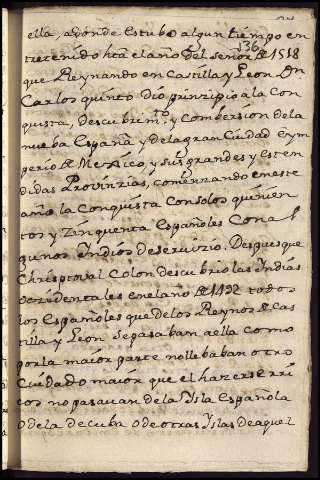 ella, adonde estubo algun tiempo en
tretenido hta el año del señor de 1518
136
que Reynando en Castilla y Leon Dn
Carlos quinto dio prinzipio a la Con
quista, descubrimto. y combersion dela
nueba España y dela gran Ciudad e ym
perio de Mexico y sus grandes y esten
didas Provinzias, comenzando en este
año la Conquista con solos quinien
tos y zinquenta Españoles con al
gunos Indios de servizio. Despues que
Christoval Colon descubrio las Indias
occidentales en el año de 1492 todos
los Españoles que delos Reynos de Cas
tilla y Leon se pasaban a ella como
por la maior parte no llebaban otro
Cuidado maior que el hazerse rri
cos no pasavan dela Isla Española
o dela de cuba o de otras Yslas de aquel